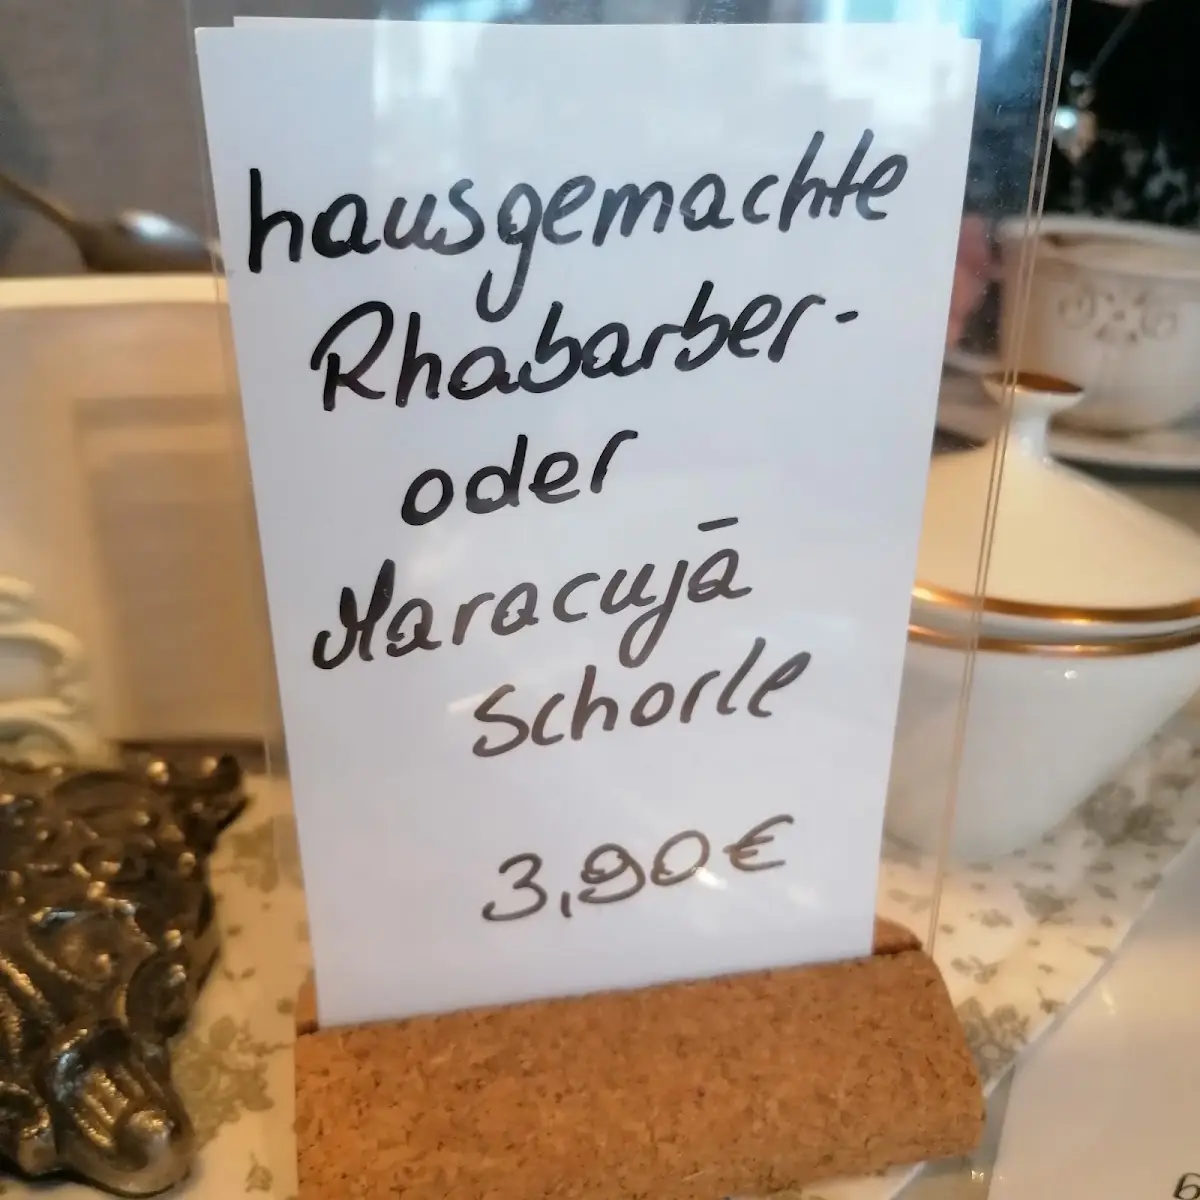 hausgemachte
Rhabarber-
oder
Maracujā
Schorle
3,90€